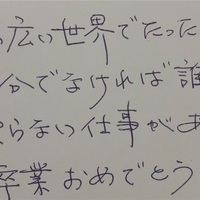 広い世界でたった
分でなければ誰
らない仕事があ
卒業おめでとう